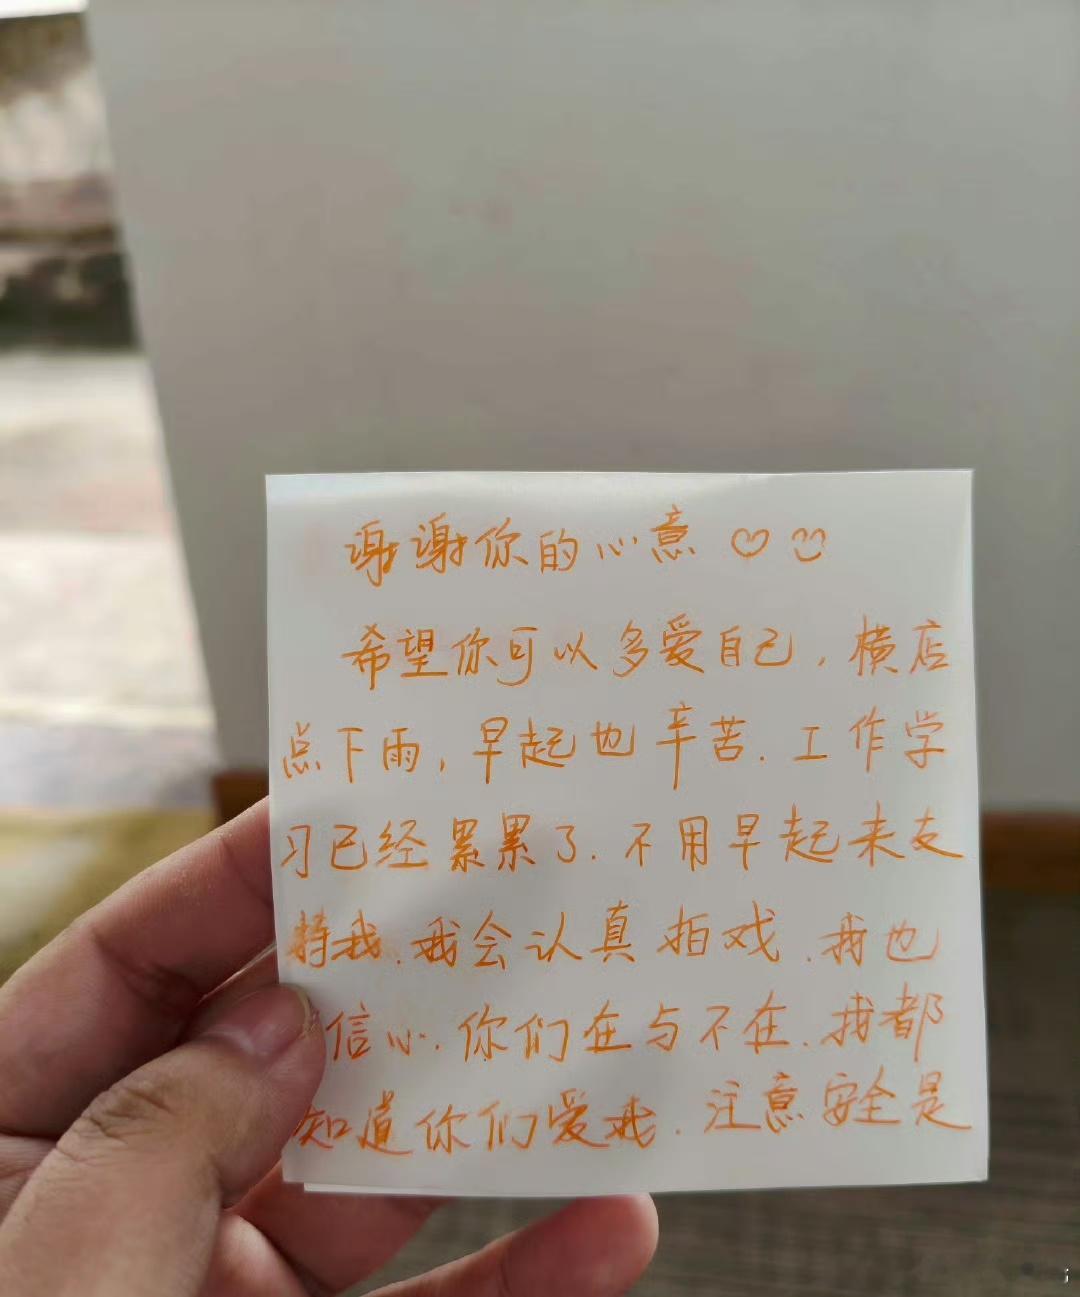 谢谢你的心意 ♡
希望你可以多爱自己，横店
点下雨，早起也辛苦.工作学
习已经累累了.不用早起来支
持我.我会认真拍戏.我也
信心.你们在与不在.我都
知道你们爱我.注意安全是